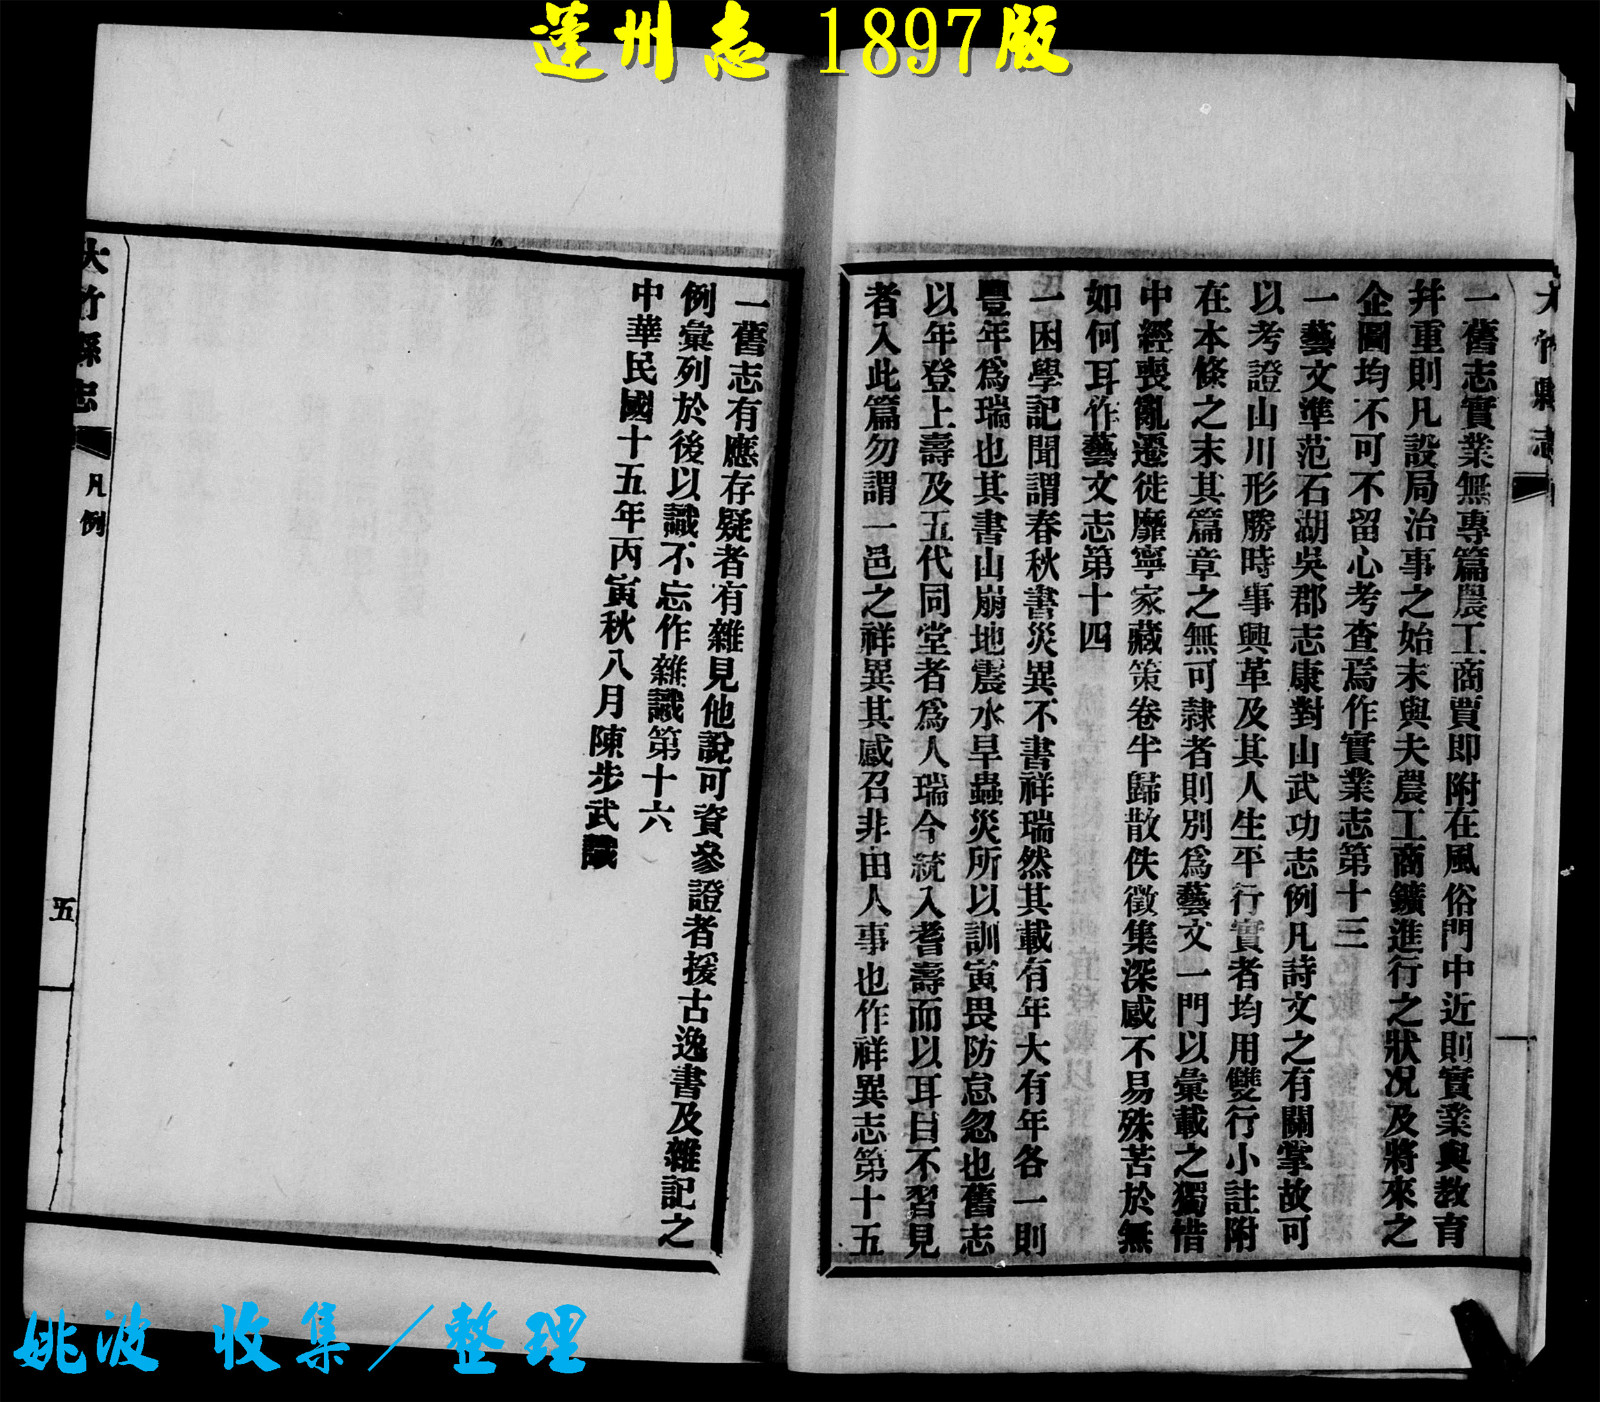 蓬州志 1897版
大竹縣志
一舊志實業無專篇農工商賈即附在風俗門中近則實業與教育
幷重則凡設局治事之始末與夫農工商鑛進行之狀況及將來之
企圖均不可不留心考查焉作實業志第十三
一藝文準范石湖吳郡志康對山武功志例凡詩文之有關掌故可
以考證山川形勝時事興革及其人生平行實者均用雙行小註附
在本條之末其篇章之無可隸者則別爲藝文一門以彙載之獨惜
中經喪亂遷徙靡寧家藏策卷半歸散佚徵集深感不易殊苦於無
如何耳作藝文志第十四
一困學記聞謂春秋書災異不書祥瑞然其載有年大有年各一則
豐年爲瑞也其書山崩地震水旱蟲災所以訓寅畏防怠忽也舊志
以年登上壽及五代同堂者爲人瑞今統入耆壽而以耳目不習見
者入此篇勿謂一邑之祥異其感召非由人事也作祥異志第十五
一舊志有應存疑者有雜見他說可資參證者援古逸書及雜記之
例彙列於後以識不忘作雜識第十六
中華民國十五年丙寅秋八月陳步武識
大竹縣志
凡例
五
姚波 收集／整理